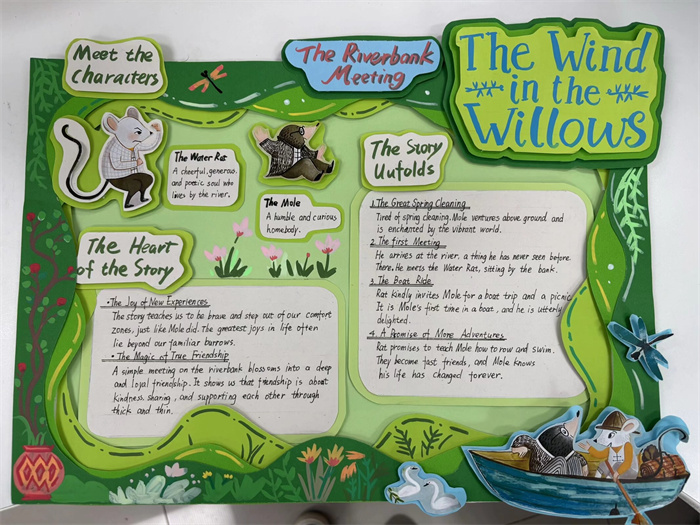 Meet the
Characters
The Riverbank
Meeting
The Wind
in the
Willows
The Water Rat
A cheerful, generous.
and poetic soul who
lives by the river.
The Mole
A humble and curious
homebody.
The Story
Unfolds
1. The Great Spring Cleaning
Tired of spring cleaning, Mole ventures above ground and
is enchanted by the vibrant world.
2. The first Meeting
He arrives at the river, a thing he has never seen before.
There, He meets the Water Rat, sitting by the bank.
3. The Boat Ride
Rat kindly invites Mole for a boat trip and a picnic.
It is Mole's first time in a boat, and he is utterly
delighted.
4. A Promise of More Adventures
Rat promises to teach Mole how to row and swim.
They become fast friends, and Mole knows
his life has changed forever.
The Heart
of the Story
•The Joy of New Experiences
The story teaches us to be brave and step out of our comfort
zones, just like Mole did. The greatest joys in life often
lie beyond our familiar burrows.
• The Magic of True Friendship
A simple meeting on the riverbank blossoms into a deep
and loyal friendship. It shows us that friendship is about
kindness, sharing, and supporting each other through
thick and thin.